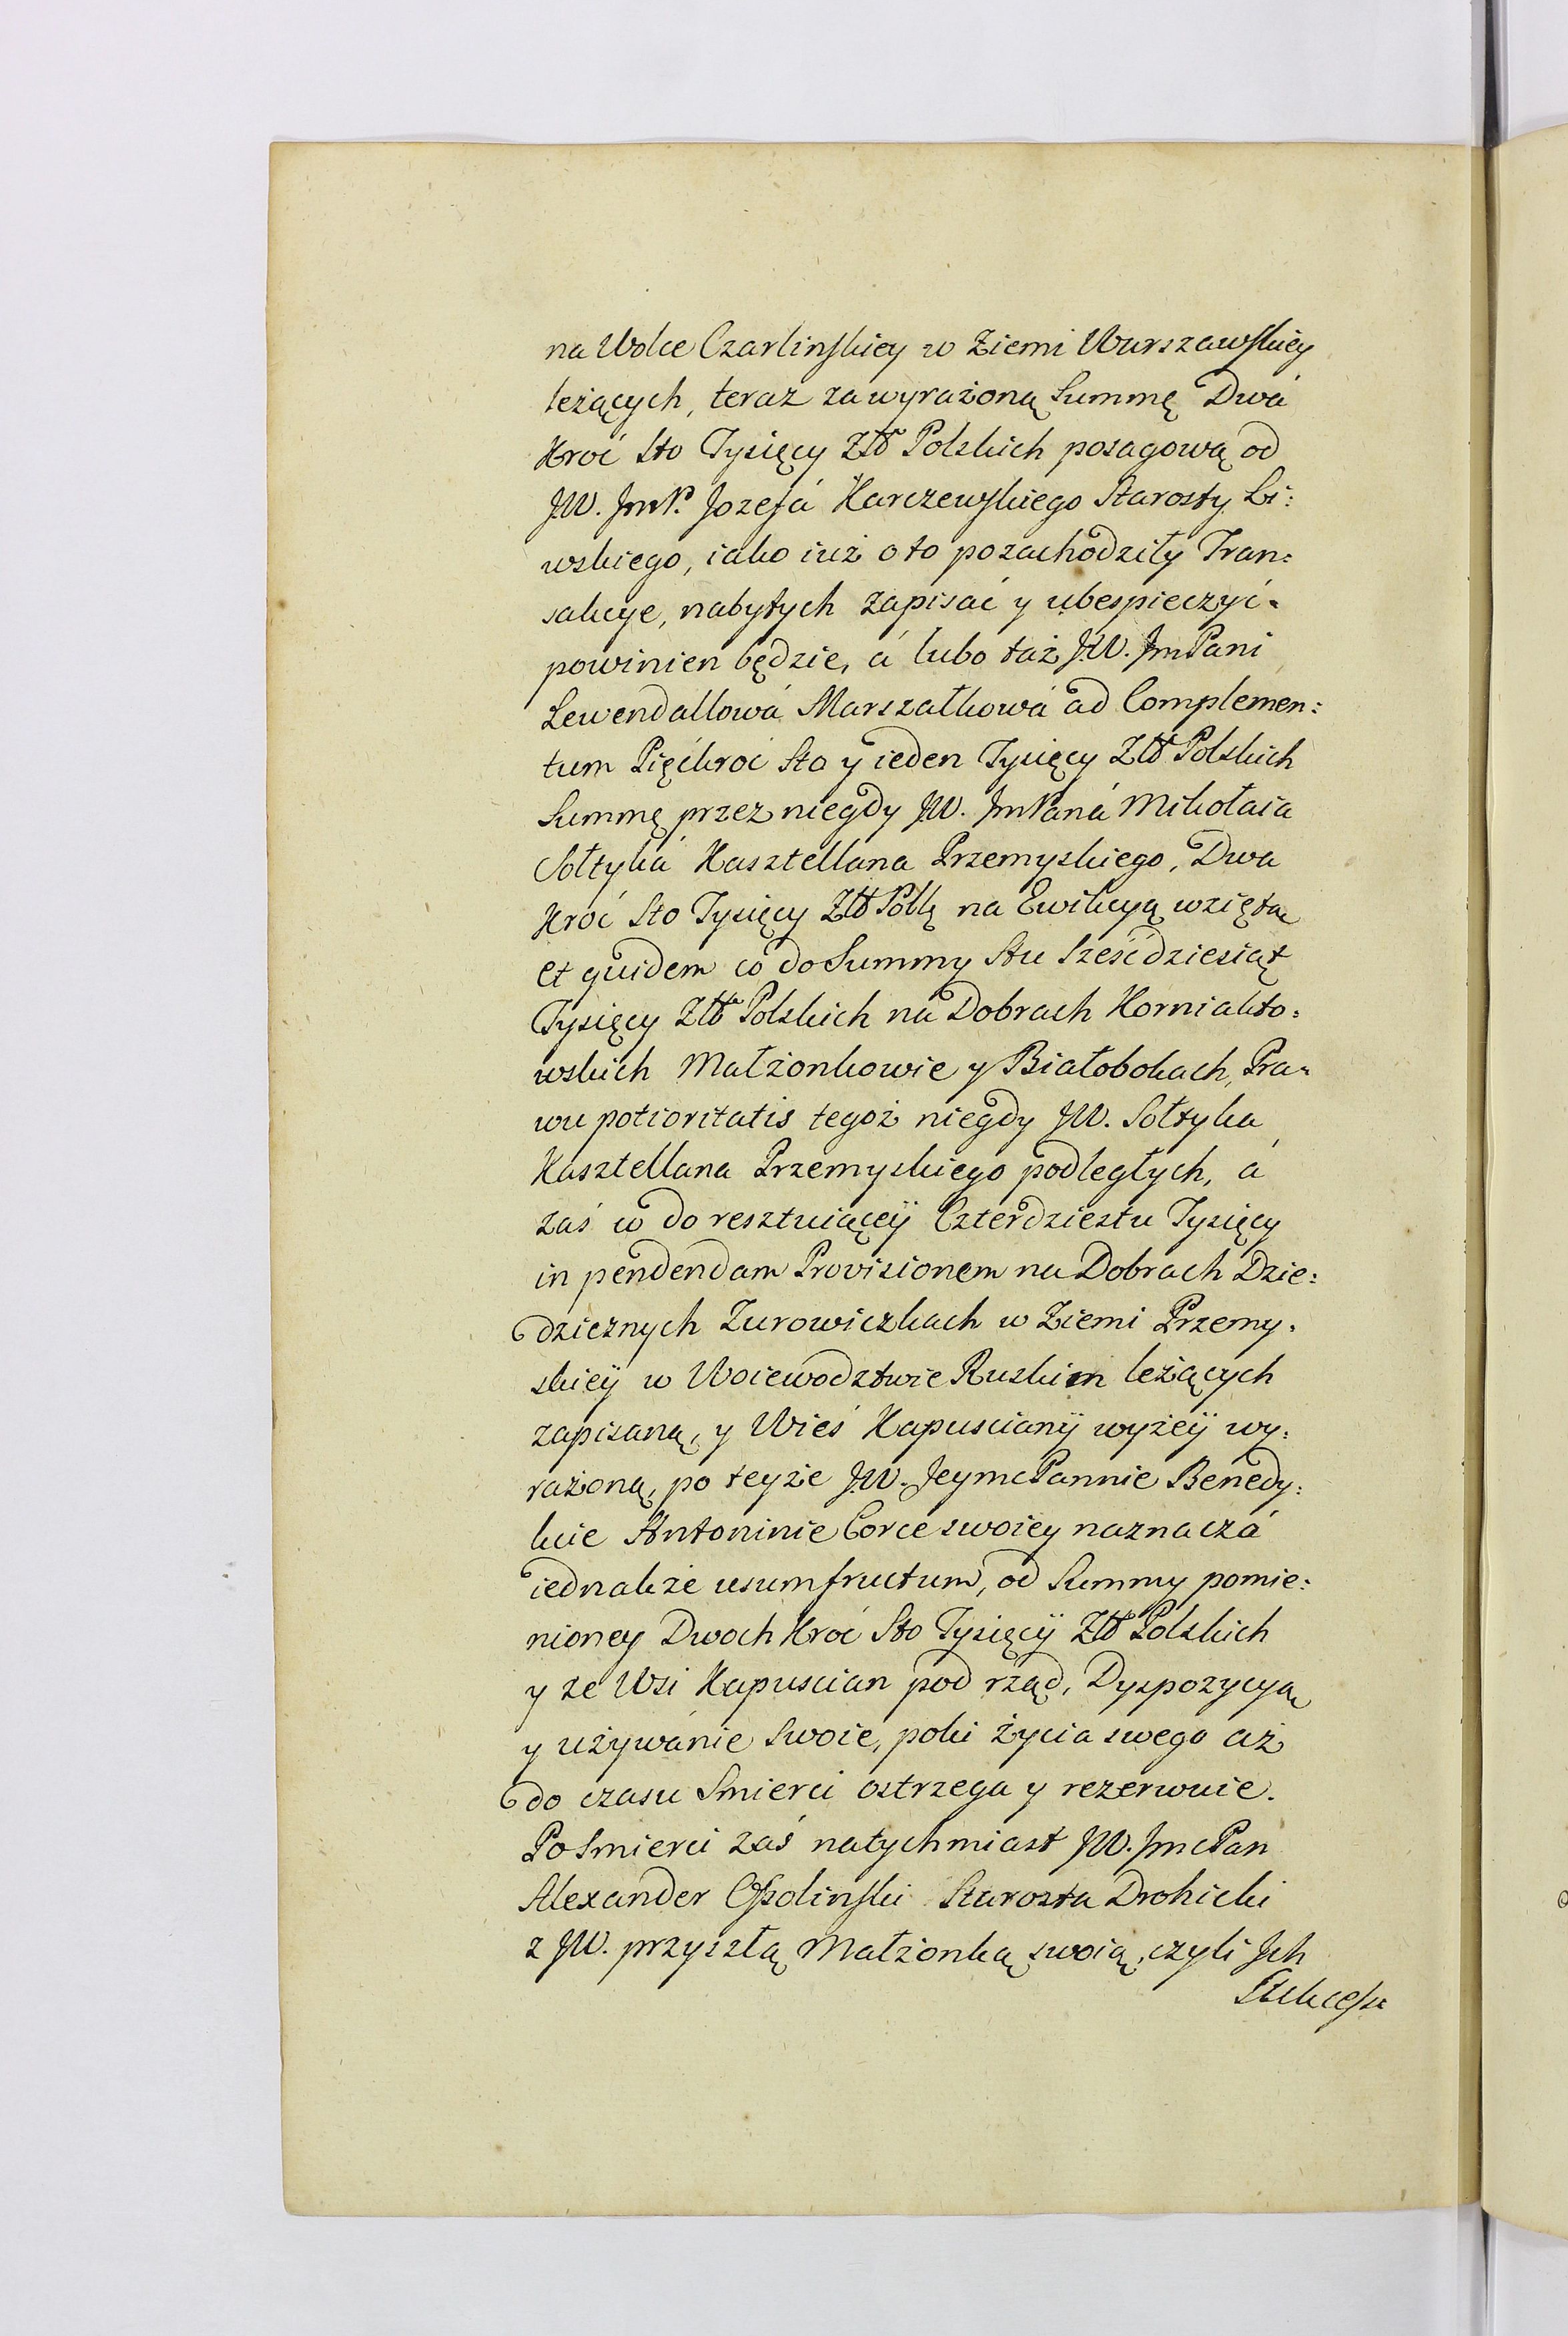 na Wolce Czarlinskiey w Ziemi Warszawskiey
leżących, teraz za wyrażoną Summę Dwá
Kroć Sto Tysięcy Złł Polskich posagową od
JW. JmP. Jozefá Karczewskiego Starosty Li:
wskiego, iako iuż o to pozachodziły Tran:
sakcye, nabytych zapisać y ubespieczyć
powinien będzie, á lubo taż J.W. JmPani
Lewendallowá Marszałkowá ad Complemen:
tum Pięćkroć Sto y ieden Tysięcy Złł Polskich
Summę przez niegdy JW. JmPaná Mikołaia
Sołtyká Kasztellana Przemyskiego, Dwa
Kroć Sto Tysięcy Złł Pollę na Ewikcyą wziętą
et quidem co do Summy Stu Sześćdziesiąt
Tysięcy Złł Polskich na Dobrach Korniakto:
wskich Małżonkowie y Białobokach, Pra:
wu potioritatis tegoż niegdy JW. Sołtyka
Kasztellana Przemyskiego podległych, á
zaś co do resztuiącęÿ Czterdziestu Tysięcy
in pendendam Provisionem na Dobrach Dzie:
dzicznych Zurowiczkach w Ziemi Przemy:
skiey w Woiewodztwie Ruskim leżących
zapisaną, y Wieś Kapuscianÿ wyżeÿ wy:
rażoną, po teyże J.W. JeymcPannie Benedy:
kcie Antoninie Corce swoiey naznaczá
iednakże usumfructum, od Summy pomie:
nioney Dwoch Kroć Sto Tysięcÿ Złł Polskich
y ze Wsi Kapuscian pod rząd, Dyspozycyą
y używánie swoie, poki życia swego aż
do czasu Smierci ostrzega y rezerwuie.
Po Smierci zaś natychmiast JW. JmcPan
Alexander Ossolinski Starosta Drohicki
z JW. przyszłą Małżonką swoią, czyli Jch
Sukcess